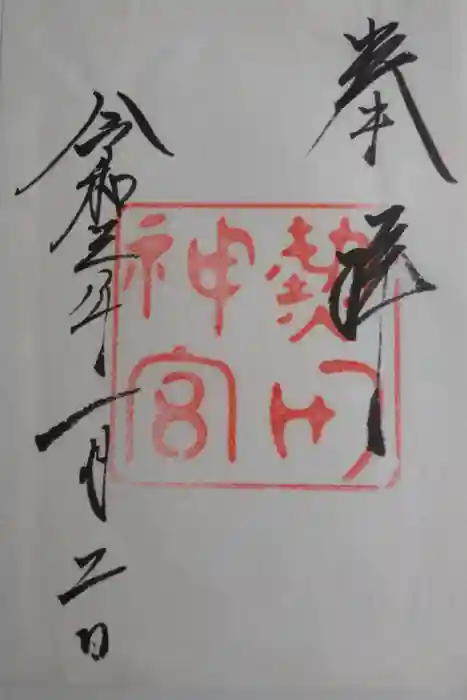 奉拝
熱田
神宮
令和三年一月二日